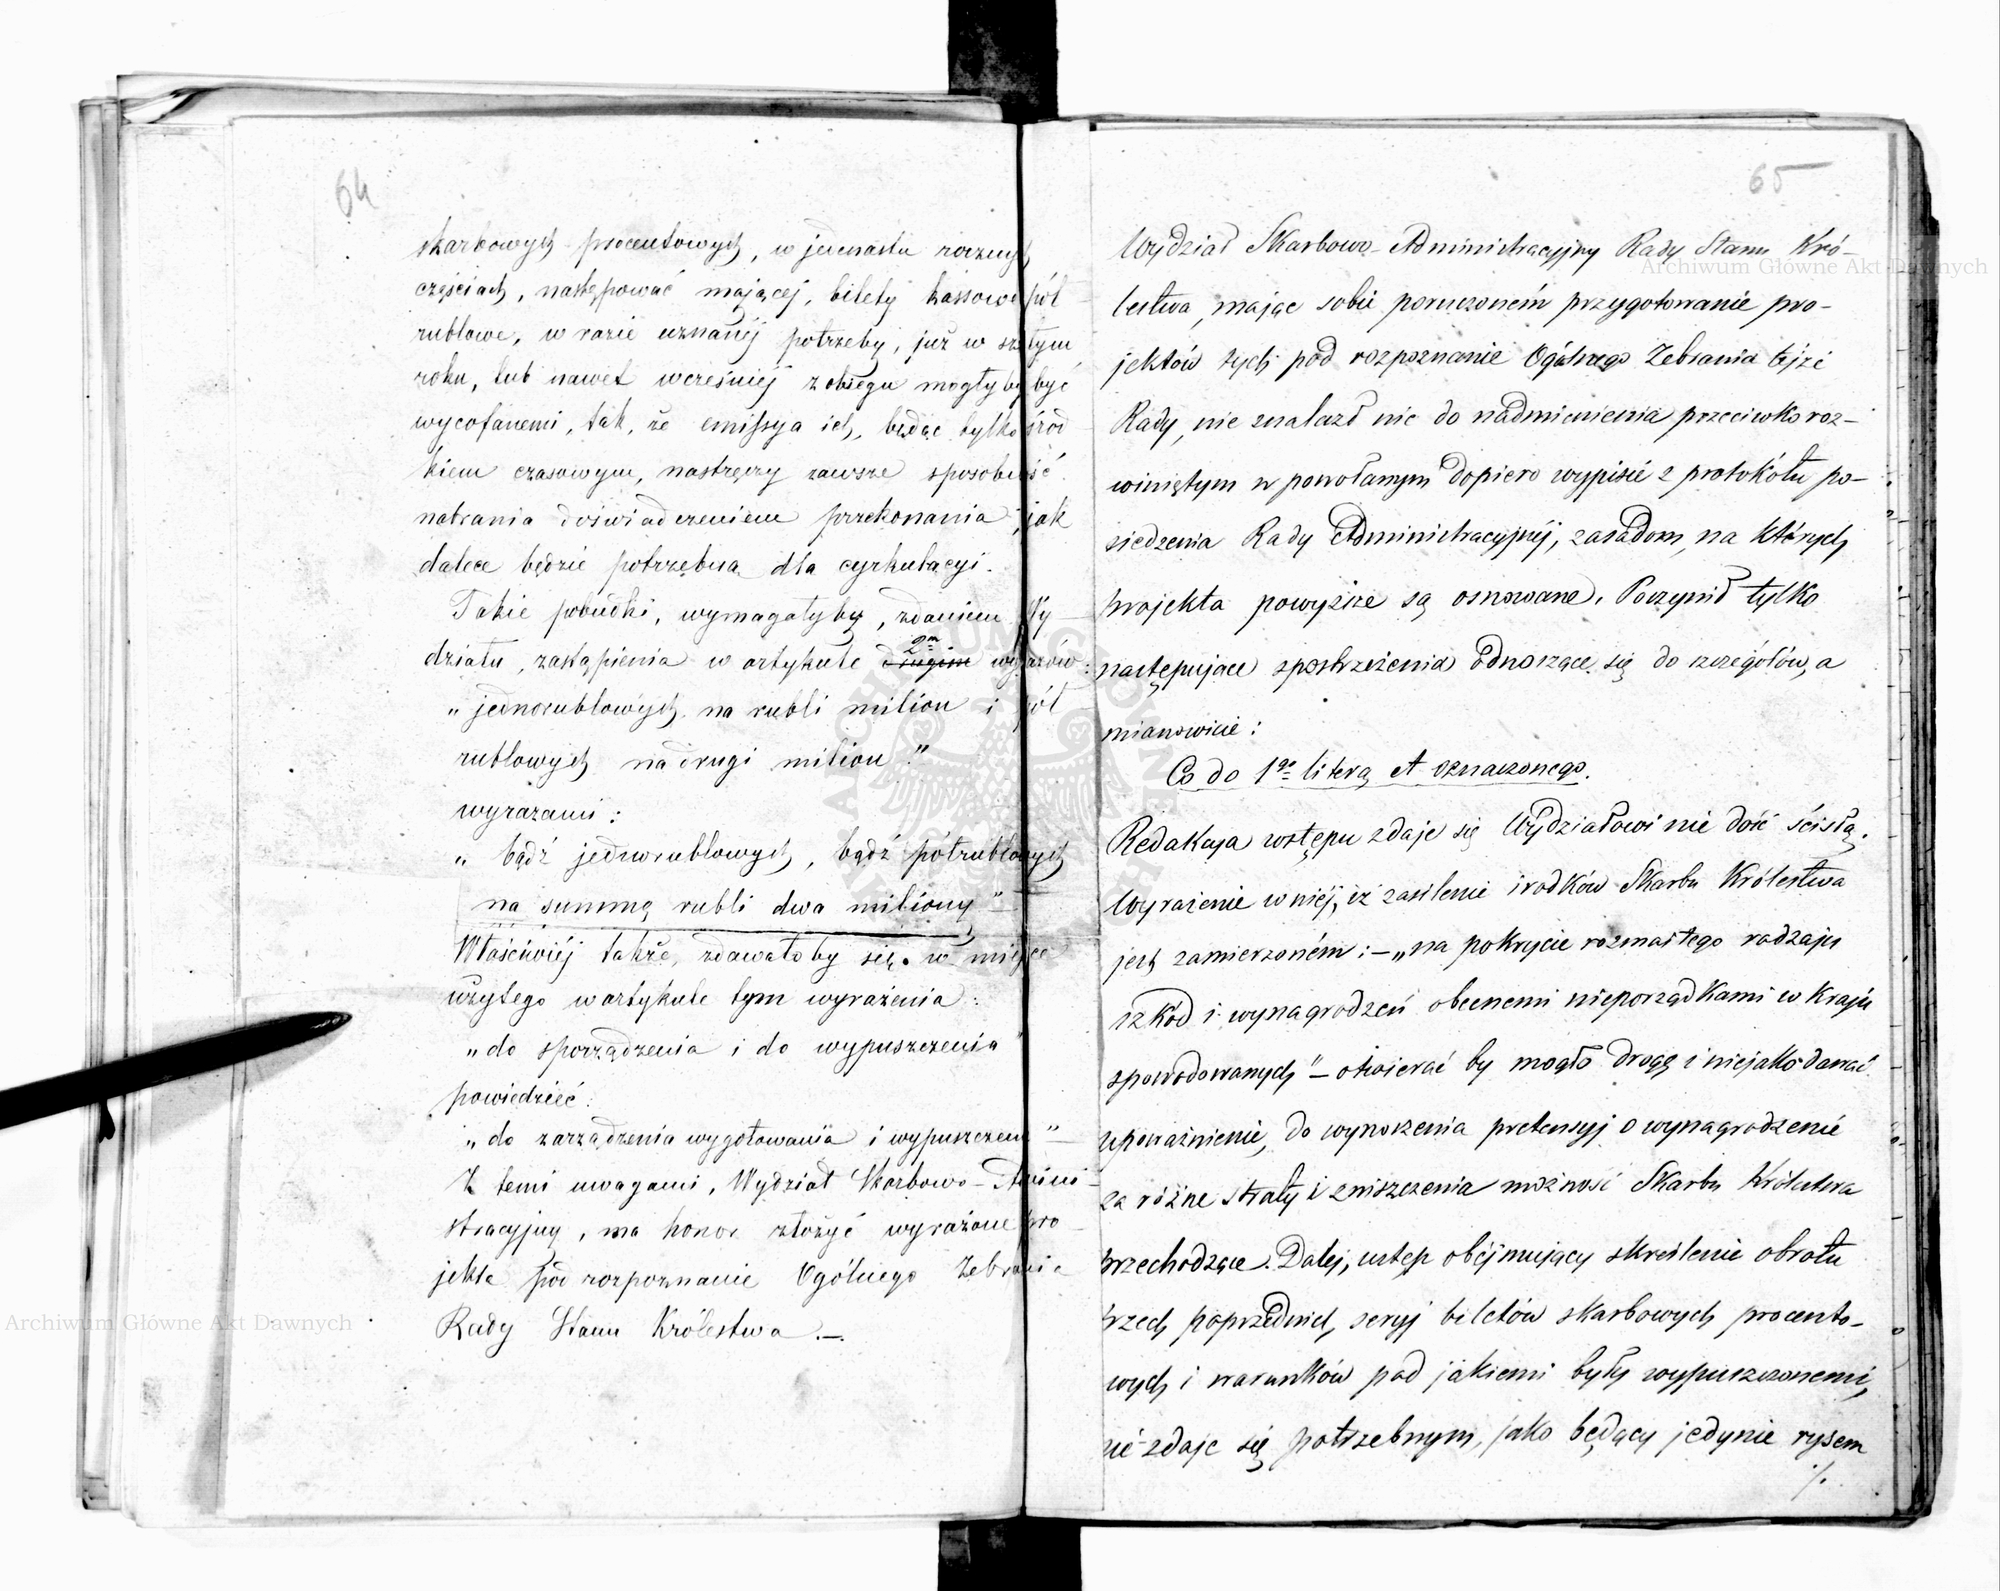 64
skarbowych procentowych, w jedenastu rocznych
częściach, następować mającej, bilety kassowe pół
rublowe, w razie uznanéj potrzeby, już w szóstym
roku, lub nawet wcześniéj z obiegu mogłyby być
wycofanemi, tak, że emissya ich, będąc tylko środ
kiem czasowym, nastręczy zawsze sposobność
nabrania doświadczeniem przekonania, jak
dalece będzie potrzebna dla cyrkulacyi.
Takie pobudki, wymagałyby, zdaniem Wy
działu, zastąpienia w artykule drugim 2m wyrazów:
„jednorublowych na rubli milion i pół
rublowych na drugi milion”
wyrazami:
„bądź jednorublowych, bądź półrublowych
na summę rubli dwa miliony”—
Właściwiéj także, zdawałoby się w miejsce
użytego w artykule tym wyrażenia:
„do sporządzenia i do wypuszczenia”
powiedzieć:
„do zarządzenia wygotowania i wypuszczenia”—
Z temi uwagami, Wydział Skarbowo-Admini
stracyjny, ma honor złożyć wyrażone pro
jekta pod rozpoznanie Ogólnego Zebrania
Rady Stanu Królestwa.—
65
Wydział Skarbowo-Administracyjny Rady Stanu Kró-
lestwa, mając sobie poruczoném przygotowanie pro-
jektów tych pod rozpoznanie Ogólnego Zebrania tejże
Rady, nie znalazł nic do nadmienienia przeciwko roz-
winiętym w powołanym dopiero wypisie z protokółu po-
siedzenia Rady Administracyjnéj, zasadom, na których
projekta powyższe są osnowane. Poczynił tylko
następujące spostrzeżenia odnoszące się do szczegółów, a
mianowicie:
Co do 1go literą A oznaczonego.
Redakcya wstępu zdaje się Wydziałowi nie dość ścisłą.
Wyrażenie w niéj, iż zasilenie środków Skarbu Królestwa
jest zamierzoném:—„na pokrycie rozmaitego rodzaju
szkód i wynagrodzeń obecnemi nieporządkami w Kraju
spowodowanych”—otwierać by mogło drogę i niejako dawać
upoważnienie, do wynoszenia pretensyj o wynagrodzenie
za różne straty i zniszczenia możność Skarbu Królestwa
przechodzące. Dalej, ustęp obejmujący skreślenie obrotu
trzech poprzednich seryj biletów skarbowych procento-
wych i warunków pod jakiemi były wypuszczonemi,
nie zdaje się potrzebnym, jako będący jedynie rysem
./.
Archiwum Główne Akt Dawnych
Archiwum Główne Akt Dawnych
ARCHIWUM GŁÓWNE AKT DAWNYCH